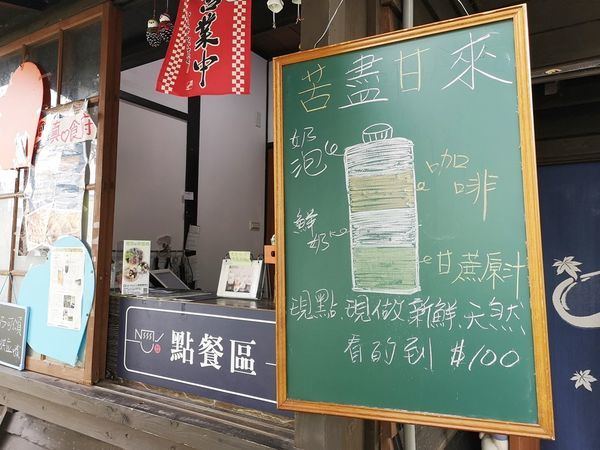 營業中
苦盡甘來
奶泡
咖啡
鮮奶
甘蔗原汁
現點現做新鮮.天然
看的到 $100
點餐區